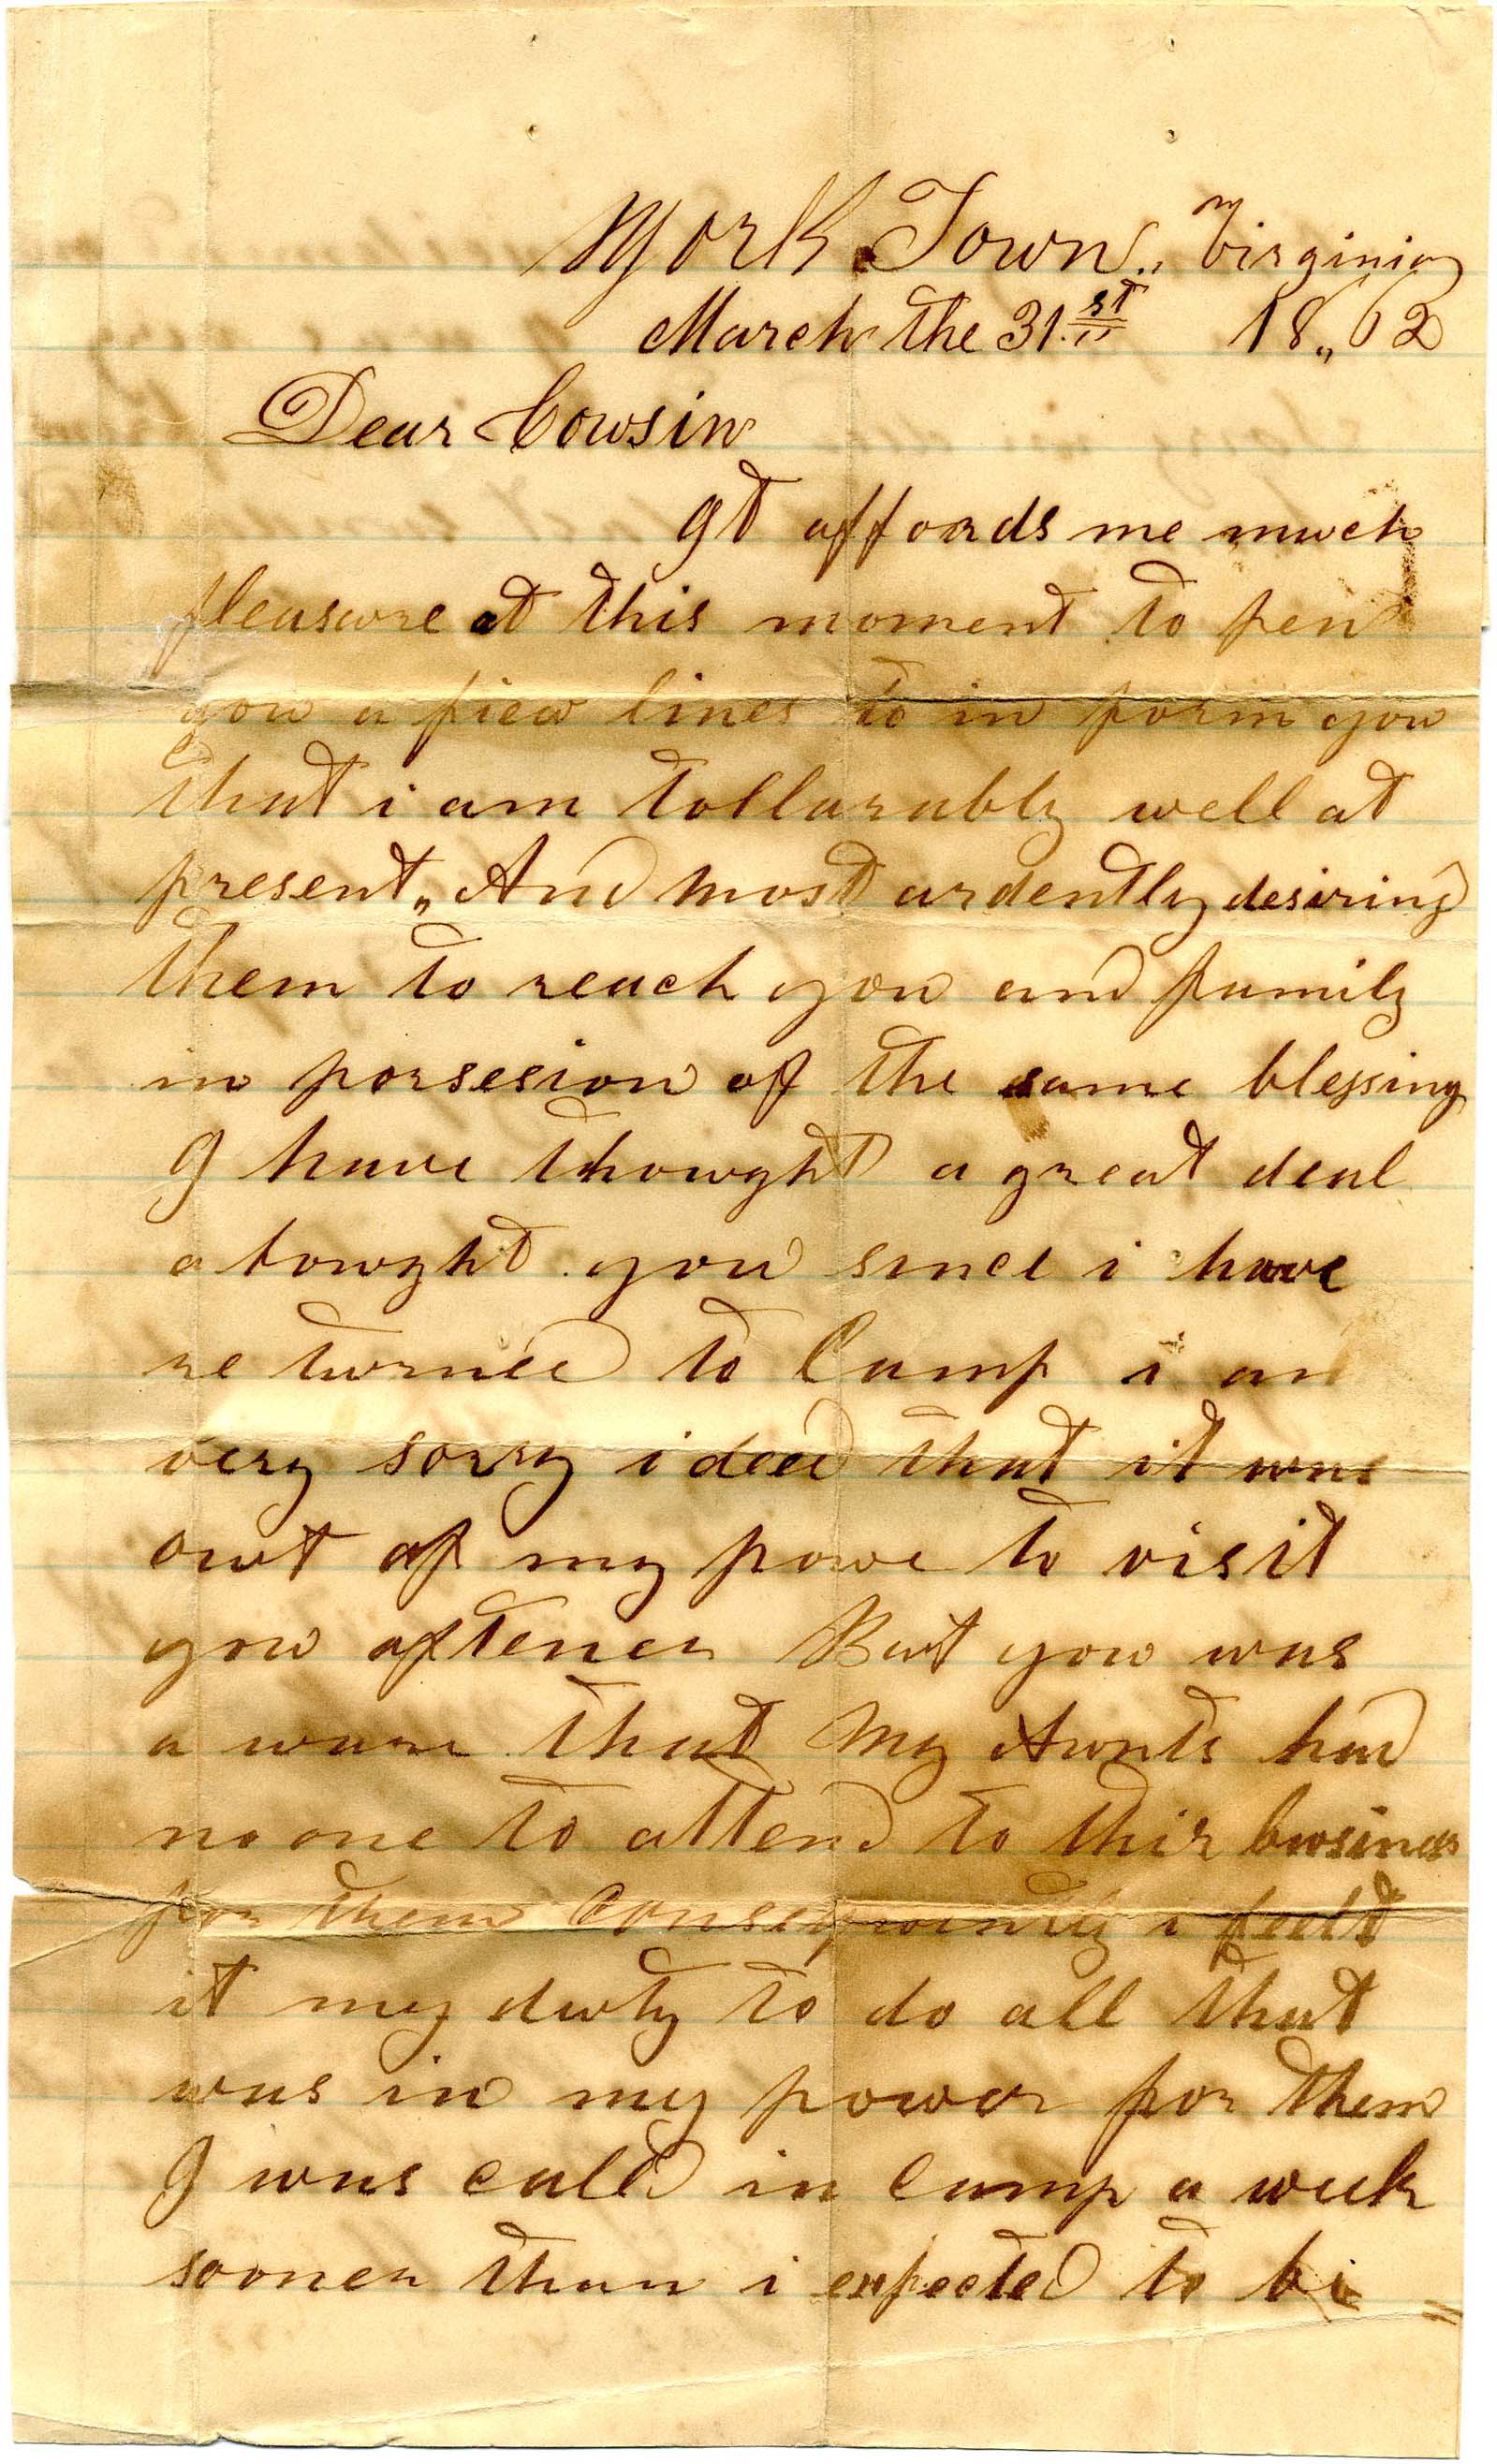 York Town,, Virginia
March the 31.st 18,,62
Dear Cousin
It affords me much
pleasure at this moment to pen
you a fiew lines to in form you
that i am tollarably well at
present,, And most ardently desiring
them to reach you and family
in porsesion of the same blessing
I have thought a great deal
a bought you since i have
re turned to Camp i am
very sorry ideed that it was
out of my powe to visit
you oftener But you was
a ware that My Aunts had
no one to attend to thir business
for them consequuntly i feelt
it my duty to do all that
was in my power for them
I was calld in Camp a week
sooner than i expected to be =